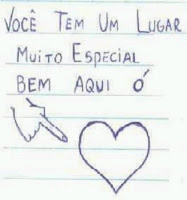 VOCÊ TEM UM LUGAR
MUITO ESPECIAL
BEM AQUI Ó